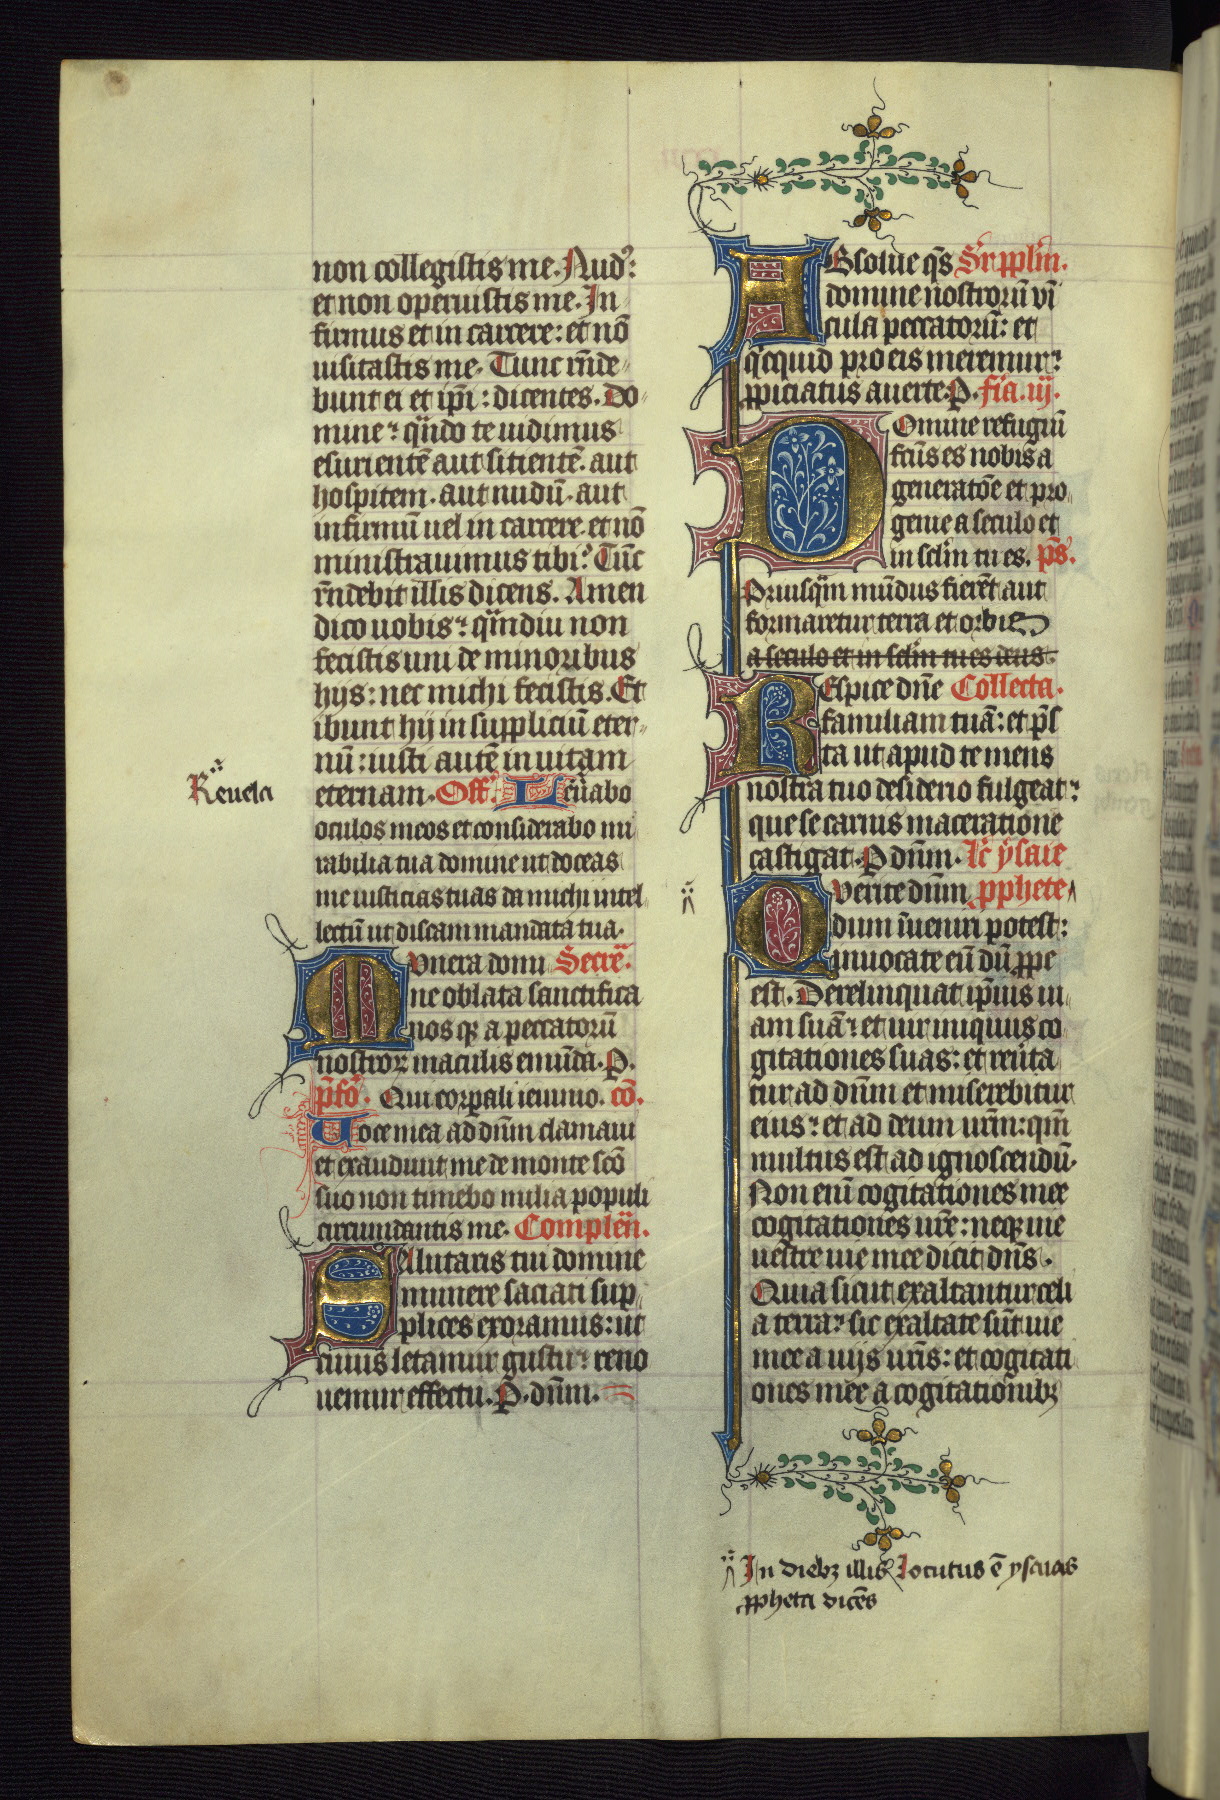 non collegistis me. Nud':
et non operuistis me. In
firmus et in carcere: et nō
uisitastis me. Tunc rñde
bunt ei et ip̄i: dicentes. Do
mine: qn̄do te uidimus
esurientē aut sitientē. aut
hospitem. aut nudū. aut
infirmū uel in carcere et nō
ministrauimus tibi? Tūc
rñdebit illis dicens. Amen
dico uobis: qm̄diu non
fecistis uni de minoribus
hys: nec michi fecistis. Et
ibunt hij in suppliciū eter
nū: iusti autē in uitam
Reuela
eternam. Off'. Leuabo
oculos meos et considerabo mi
rabilia tua domine ut doceas
me iusticias tuas da michi intel
lectū ut discam mandata tua.
Munera domi Secre᷑.
ne oblata sanctifica
nos qꝫ a peccatorū
nostroꝝ maculis emūda. P.
p̄fō. Qui corpali ieiunio. cō.
Uoce mea ad dn̄m clamaui
et exaudiuit me de monte scō
suo non timebo milia populi
circumdantis me. Complen̄.
Sallutaris tui domine
munere saciati sup
plices exoramus: ut
cuius letamur gustu: reno
uemur effectu. P. dn̄m.
ABsolue qs̄ Sr ꝓplm̄.
domine nostrorū vī
cula peccatorū: et
qͥcquid pro eis meremur:
ꝓpiciatus auerte. P. fia. iij.
Domine refugiū
fc̄us es nobis a
generatōe et pro
genie a seculo et
in sclm̄ tu es. p̄s.
Priusqͣm mūdus fieret aut
formaretur terra et orbis
a seculo et in sclm̄ tu es deus.
REspice dn̄e Collecta.
familiam tuā: et p̄s
ta ut apud te mens
nostra tuo desiderio fulgeat:
que se carnis maceratione
castigat. P dn̄m. Lc̄ ysaie
QUerite dn̄m ꝓphete
dum īueniri potest:
inuocate eū dū ꝓpe
est. Derelinquat ip̄ius ui
am suā: et uir iniquus co
gitationes suas: et reūta
tur ad dn̄m et miserebitur
eius: et ad deum nr̄m: qm̄
multus est ad ignoscendū.
Non eni cogitationes mee
cogitationes ur̄e: neqꝫ uie
uestre uie mee dicit dn̄s.
Quia sicut exaltantur celi
a terra: sic exaltate sūt uie
mee a uijs ur̄is: et cogitati
ones mee a cogitationibꝫ
In diebꝫ illis locutus ē ysaias
ꝓpheta dicēs